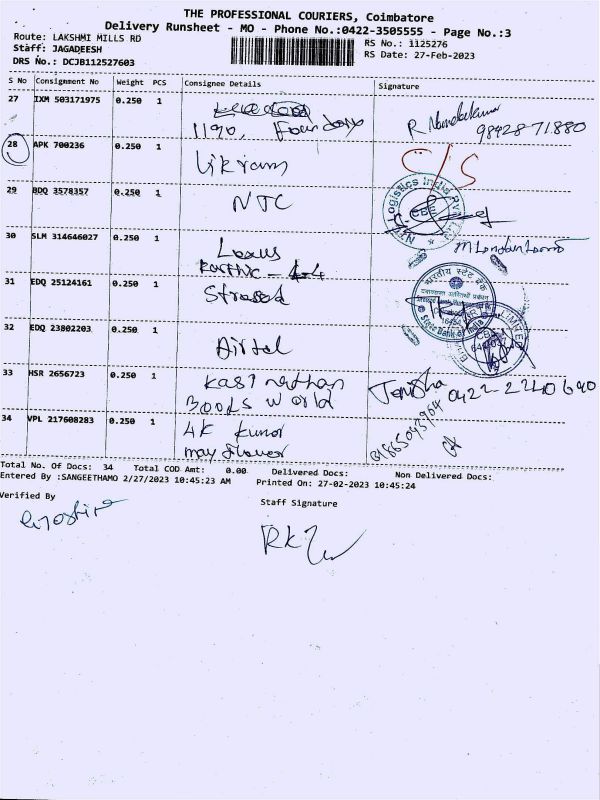 THE PROFESSIONAL COURIERS, Coimbatore
Delivery Runsheet - MO - Phone No.:0422-3505555 - Page No.:3
Route: LAKSHMI MILLS RD
RS No.: 1125276
Staff: JAGADEESH
RS Date: 27-Feb-2023
DRS No.: DCJB112527603
S No Consignment No Weight PCS Consignee Details Signature
27 IXM 503171975 0.250 1
1190, Foundary
R Nandakumar
98428-71880
28 APK 700236 0.250 1 Vikram C/S
29 BDQ 3578357 0.250 1 NTC
30 SLM 314646027 0.250 1 Lexus
Karthic
31 EDQ 25124161 0.250 1 Stressed
भारतीय स्टेट बैंक
State Bank of India
32 EDQ 23802203 0.250 1 Airtel
33 HSR 2656723 0.250 1 Kasinathan
Books World
Jenisha 0422-2240690
34 VPL 217608283 0.250 1 AK Kumar
may flower
Total No. Of Docs: 34 Total COD Amt: 0.00 Delivered Docs: Non Delivered Docs:
Entered By :SANGEETHAMO 2/27/2023 10:45:23 AM Printed On: 27-02-2023 10:45:24
Verified By
Staff Signature